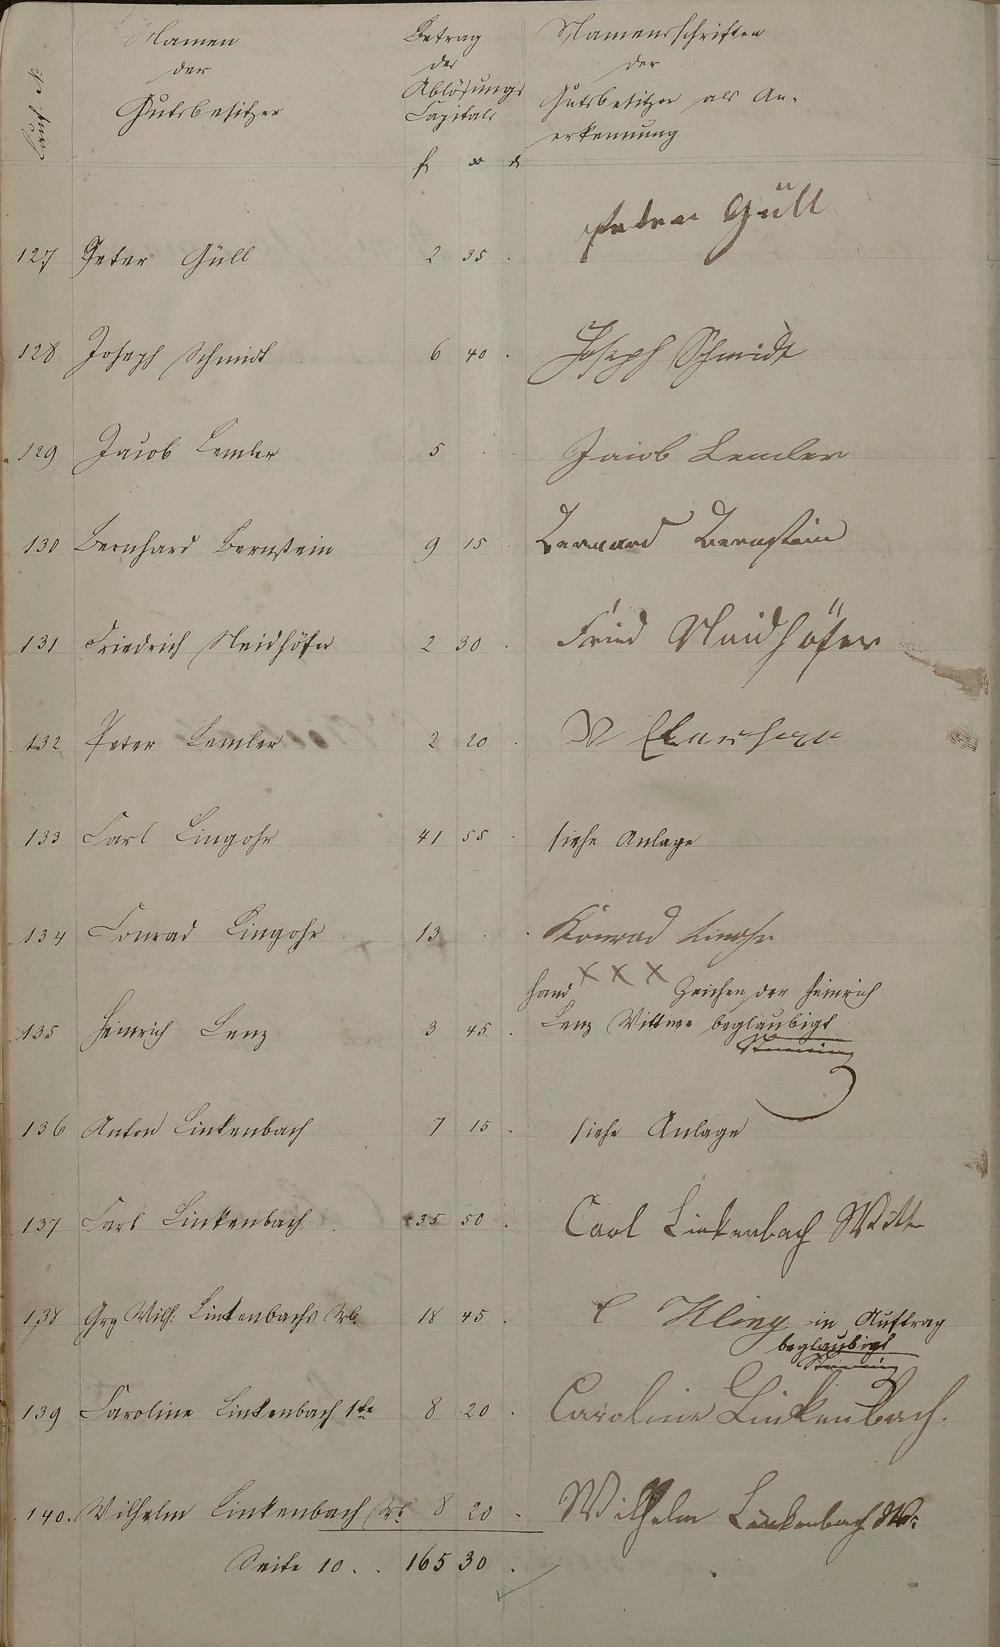 Lauf. №
Namen
der
Gutsbesitzer
Betrag
des
Ablösungs
Capitals
Namensschriften
der
Gutsbesitzer als An-
erkennung
Peter Güll
127 Peter Güll 2 35 .
128 Joseph Schmidt 6 40 . Joseph Schmidt
129 Jacob Lemler 5 . . Jacob Lemler
130 Bernhard Bernstein 9 15 Bernard Bernstein
131 Friedrich Neidhöfer 2 30 . Fried Neidhöfer
132 Peter Lemler 2 20 .
133 Carl Lingohr 41 55 . siehe Anlage
134 Conrad Lingohr 13 . . Konrad
Hand x x x Zeichen der Heinrich
135 Heinrich Lenz 3 45 . Lenz Wittwe beglaubigt
136 Anton Linkenbach 7 15 . siehe Anlage
137 Carl Linkenbach 35 50 . Carl Linkenbach Witt
138 Grg Wilh: Linkenbachs Wb. 18 45 . in Auftrag
beglaubigt
139 Caroline Linkenbach 1te 8 20 . Caroline Linkenbach.
140. Wilhelm Linkenbach Wb. 8 20 . Wilhelm Linkenbach Wb:
Seite 10 . . 165 30 .